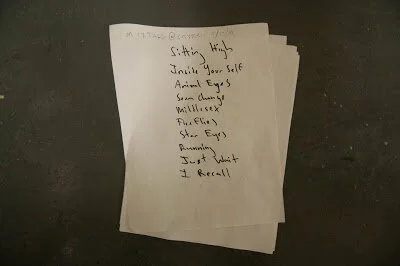 Sitting High
Inside Your Self
Animal Eyes
Seam Change
Middlesex
Fireflies
Star Eyes
Running
Just Wait
I Recall